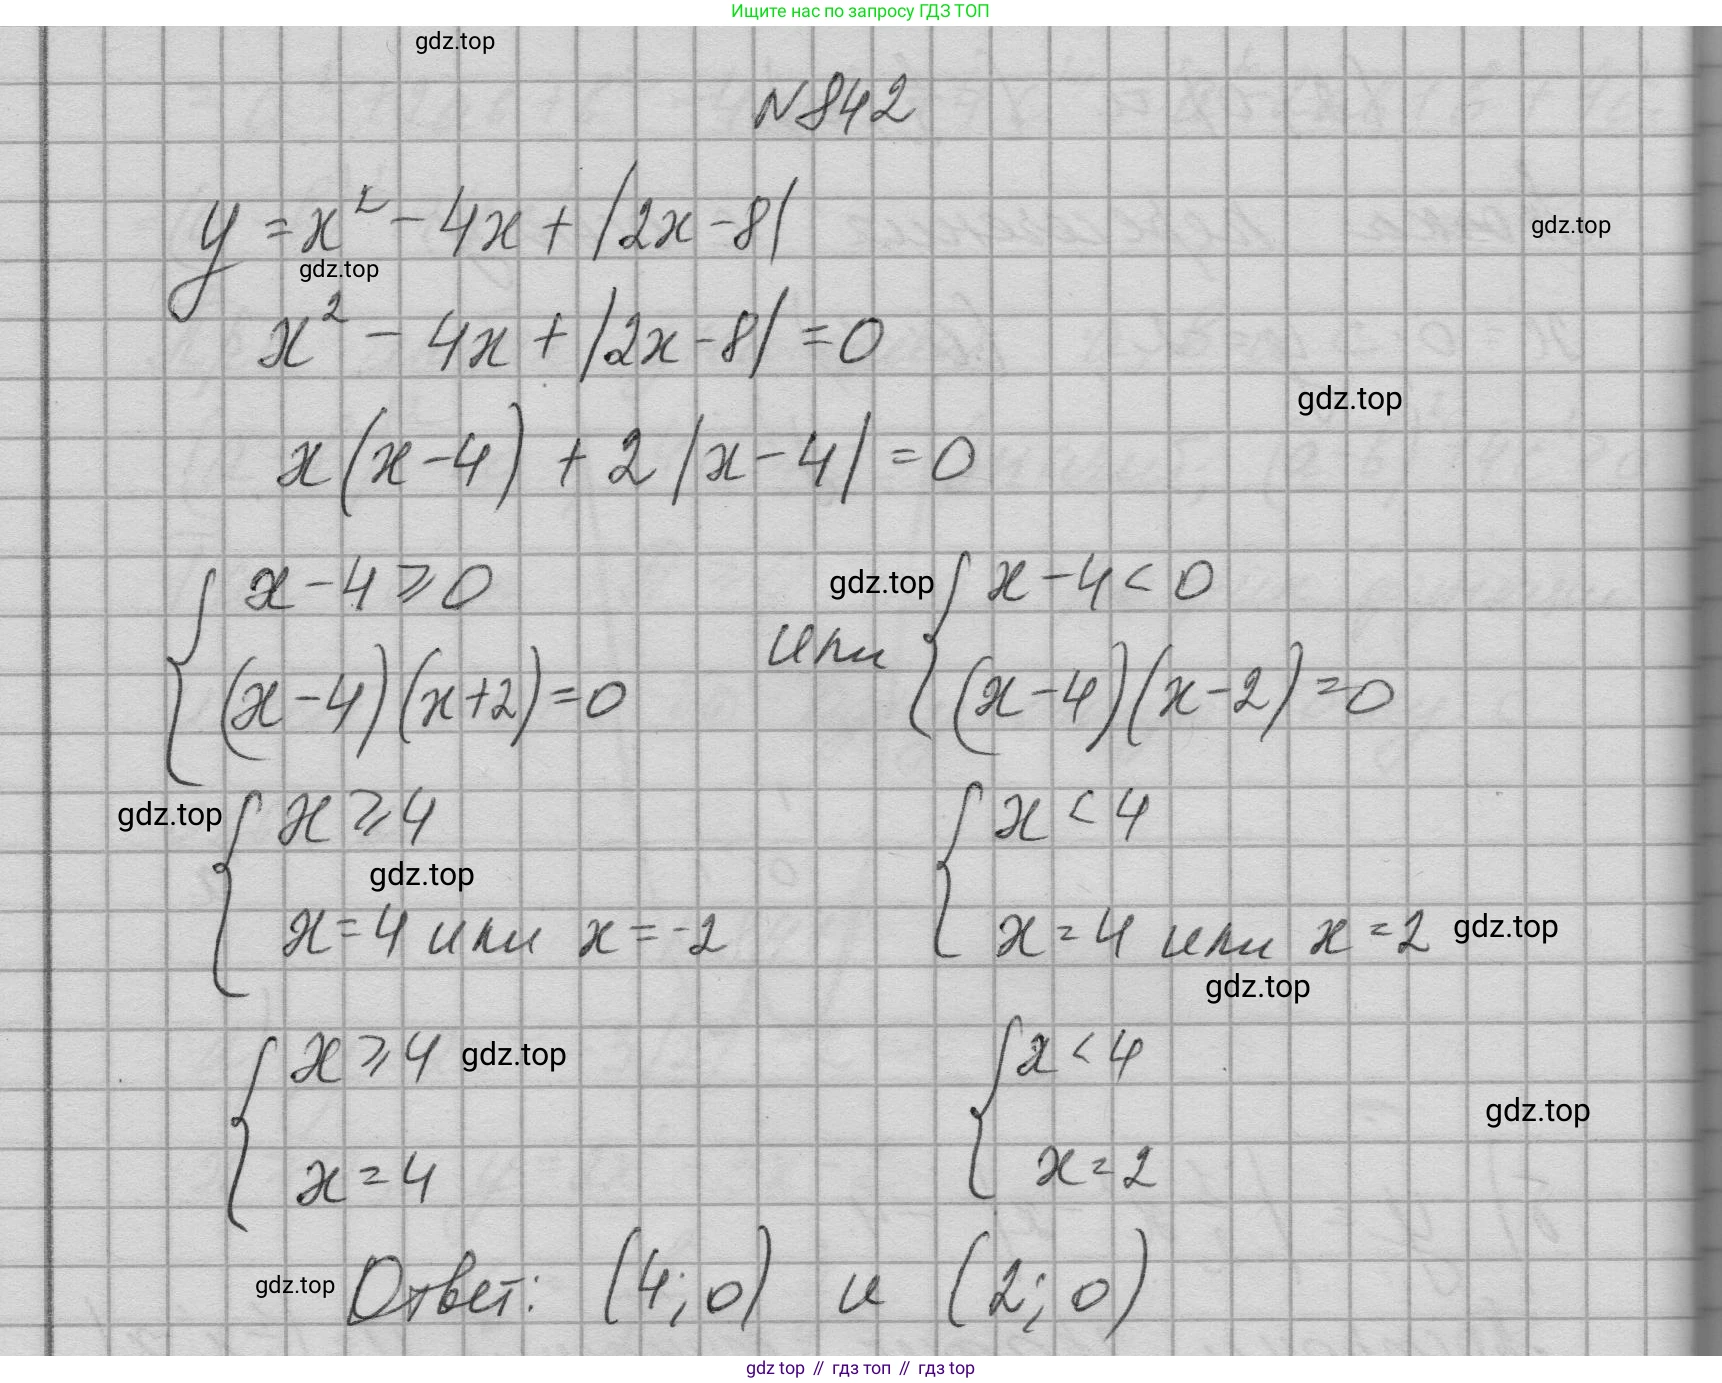 Ищите нас по запросу ГДЗ ТОП
gdz.top
№842
y = x² - 4x + |2x - 8|
gdz.top
gdz.top
x² - 4x + |2x - 8| = 0
gdz.top
x(x - 4) + 2|x - 4| = 0
{ x - 4 ⩾ 0 или gdz.top { x - 4 < 0
(x - 4)(x + 2) = 0 (x - 4)(x - 2) = 0
gdz.top { x ⩾ 4 { x < 4
gdz.top
x = 4 или x = -2 x = 4 или x = 2 gdz.top
gdz.top
{ x ⩾ 4 gdz.top { x < 4
gdz.top
x = 4 x = 2
gdz.top Ответ: (4; 0) и (2; 0)
gdz top // гдз топ // gdz top